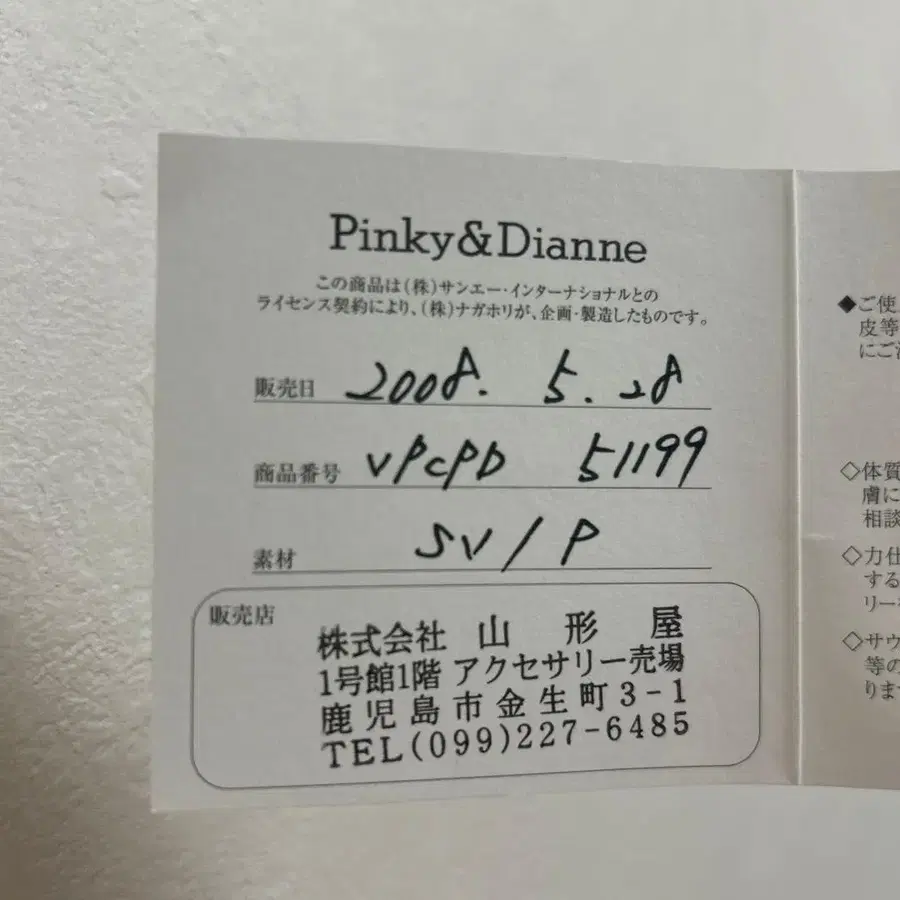 Pinky&Dianne
この商品は(株)サンエー・インターナショナルとの
ライセンス契約により、(株)ナガホリが、企画・製造したものです。
販売日 2008. 5. 28
商品番号 VPCPD 51199
素材 SV / P
販売店
株式会社 山形屋
1号館1階 アクセサリー売場
鹿児島市金生町3-1
TEL(099)227-6485
◆ご使
皮等
にご
◇体質
膚に
相談
◇力仕
する
リー
◇サウ
等の
りま